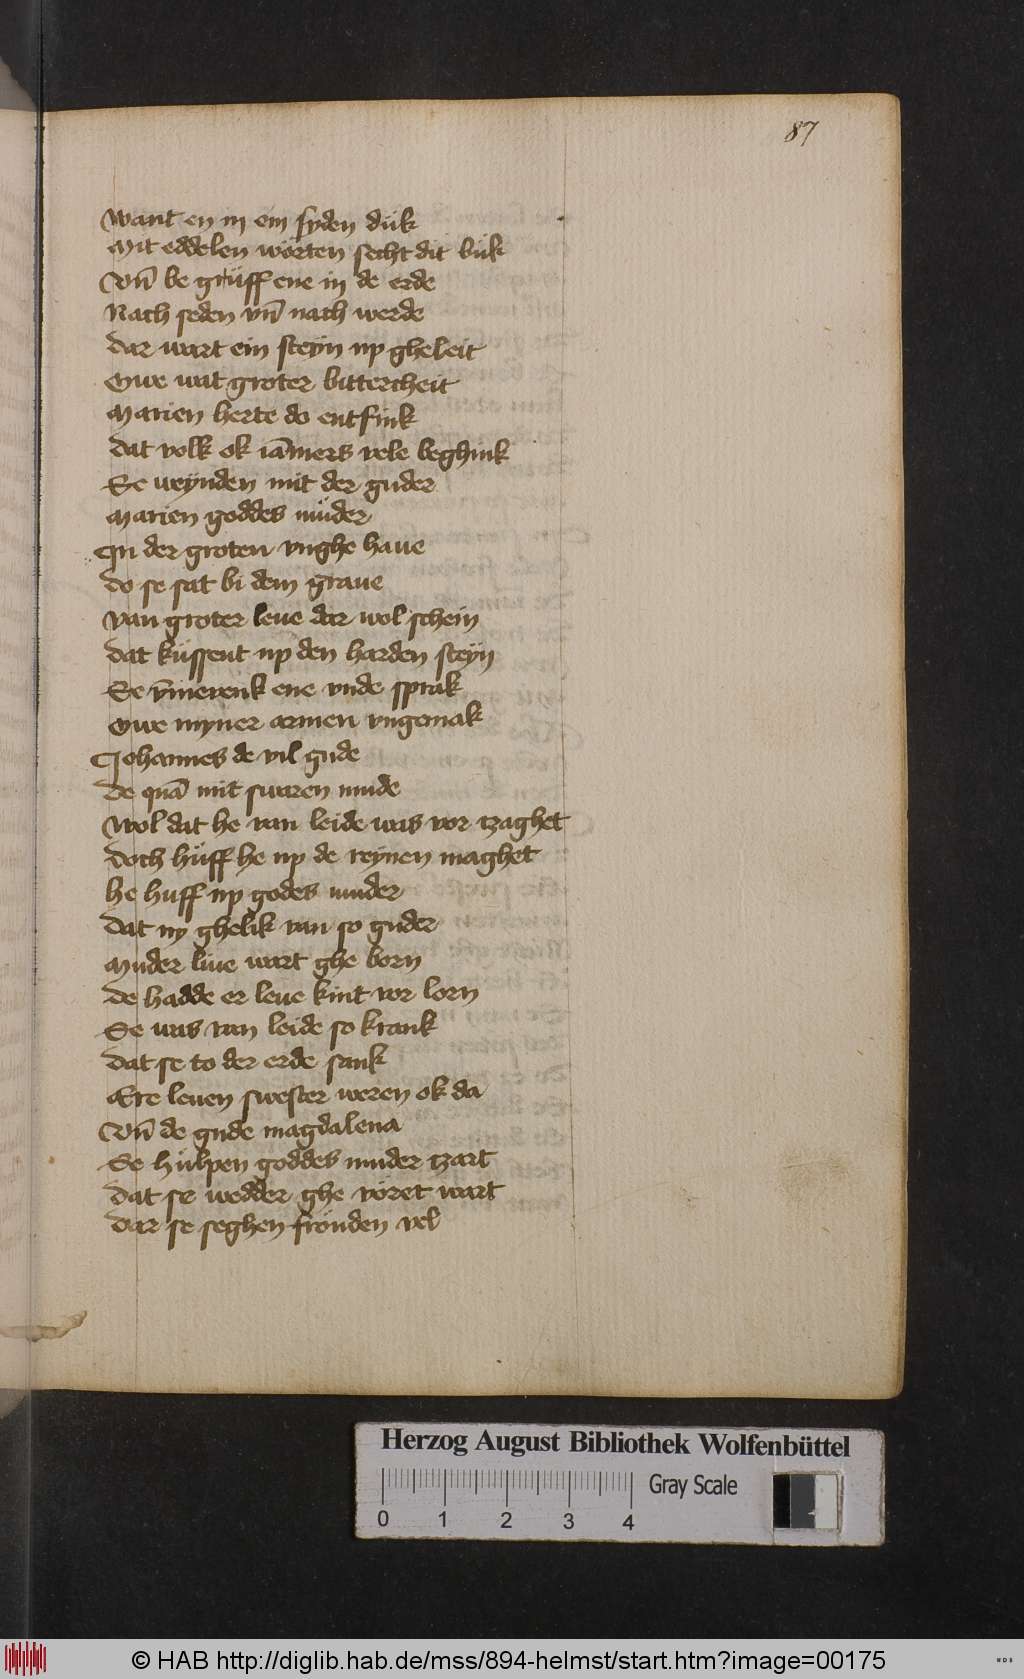 87
Want en in ein syden dük
Mit eddelen wörten secht dit bük
Vn̄ be grüff ene in de erde
Nach seden vn̄ nach werde
Dar wart ein steyn up gheleit
Owe wat groter bittercheit
Marien herte do entfink
Dat volk ok iāmers vele beghink
Se weynden mit der guder
Marien goddes müder
In der groten vnghe haue
Do se sat bi dem graue
Van groter leue dar wol schein
Dat küssent up den harden steyn
Se v̄merenk ene vnde sprak
Owe myner armen vngemak
Johannes de vil gude
De quā mit swaren mude
Wol dat he van leide was vor tzaghet
Doch hüff he up de reynen maghet
he huff up godes muder
Dat ny ghelik van so guder
Muder liue wart ghe born
De hadde er leue kint vor lorn
Se was van leide so krank
Dat se to der erde sank
Ere leuen swester weren ok da
Vn̄ de gude magdalena
Se hülpen goddes muder tzart
Dat se wedder ghe vöret wart
Dar se seghen frönden vel
Herzog August Bibliothek Wolfenbüttel
Gray Scale
0 1 2 3 4
© HAB http://diglib.hab.de/mss/894-helmst/start.htm?image=00175